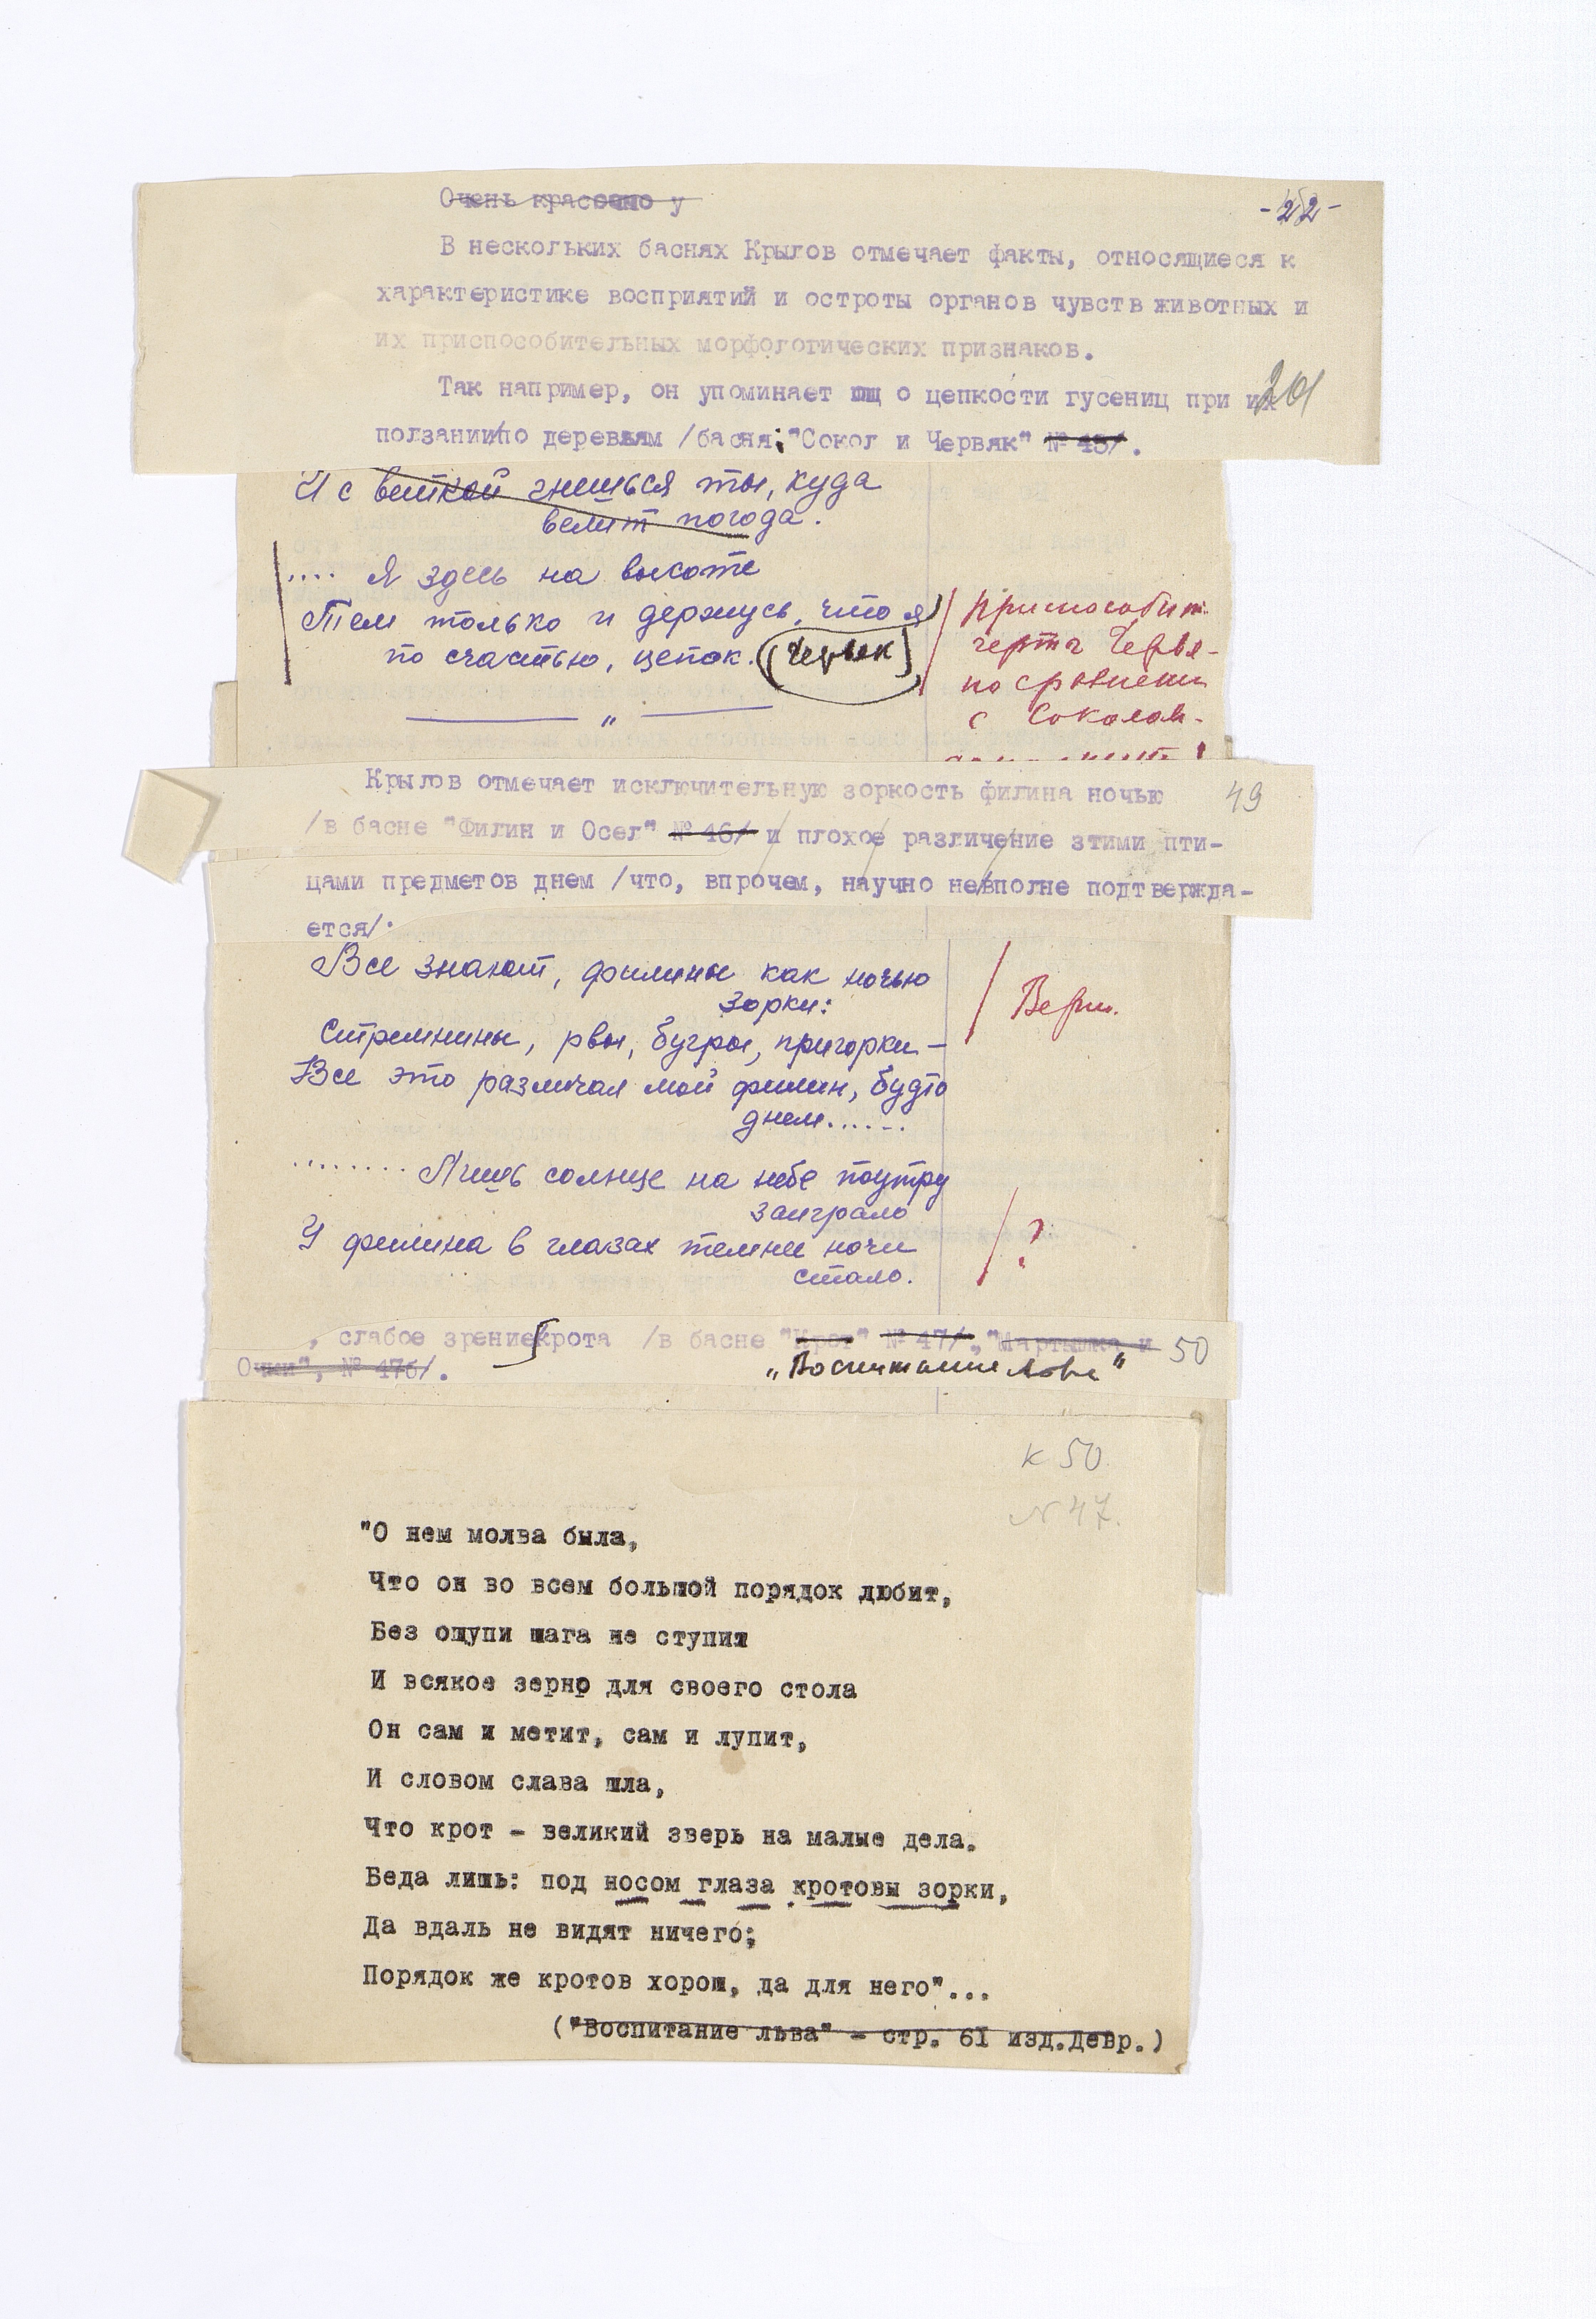 Очень красочно у
-22-
В нескольких баснях Крылов отмечает факты, относящиеся к
характеристике восприятий и остроты органов чувств животных и
их приспособительных морфологических признаков.
Так например, он упоминает о цепкости гусениц при их
201
ползании по деревьям /басня: "Сокол и Червяк" № 45/.
И с веткой гнешься ты, куда
велит погода.
.... Я здесь на высоте
Тем только и держусь, что я
по счастью, цепок. (Червяк)
Приспособит.
черта Червя-
по сравнению
с Соколом.
— " —
Крылов отмечает исключительную зоркость филина ночью
49
/в басне "Филин и Осел" № 46/ и плохое различение этими пти-
цами предметов днем /что, впрочем, научно не вполне подтвержда-
ется/.
Все знают, филины как ночью
зорки:
Стремнины, рвы, бугры, пригорки –
Все это различал мой филин, будто
днем......
Верн.
........ Лишь солнце на небе поутру
заиграло
У филина в глазах темней ночи
стало.
?
, слабое зрение крота /в басне "Крот" № 47/, "Мартышка и
50
Очки", № 47б/.
"Воспитание Льва"
к 50.
N 47.
"О нем молва была,
Что он во всем большой порядок любит,
Без ощупи шага не ступит
И всякое зерно для своего стола
Он сам и метит, сам и лупит,
И словом слава шла,
Что крот – великий зверь на малые дела.
Беда лишь: под носом глаза кротовы зорки,
Да вдаль не видят ничего;
Порядок же кротов хорош, да для него"...
("Воспитание льва" – стр. 61 изд.Девр.)